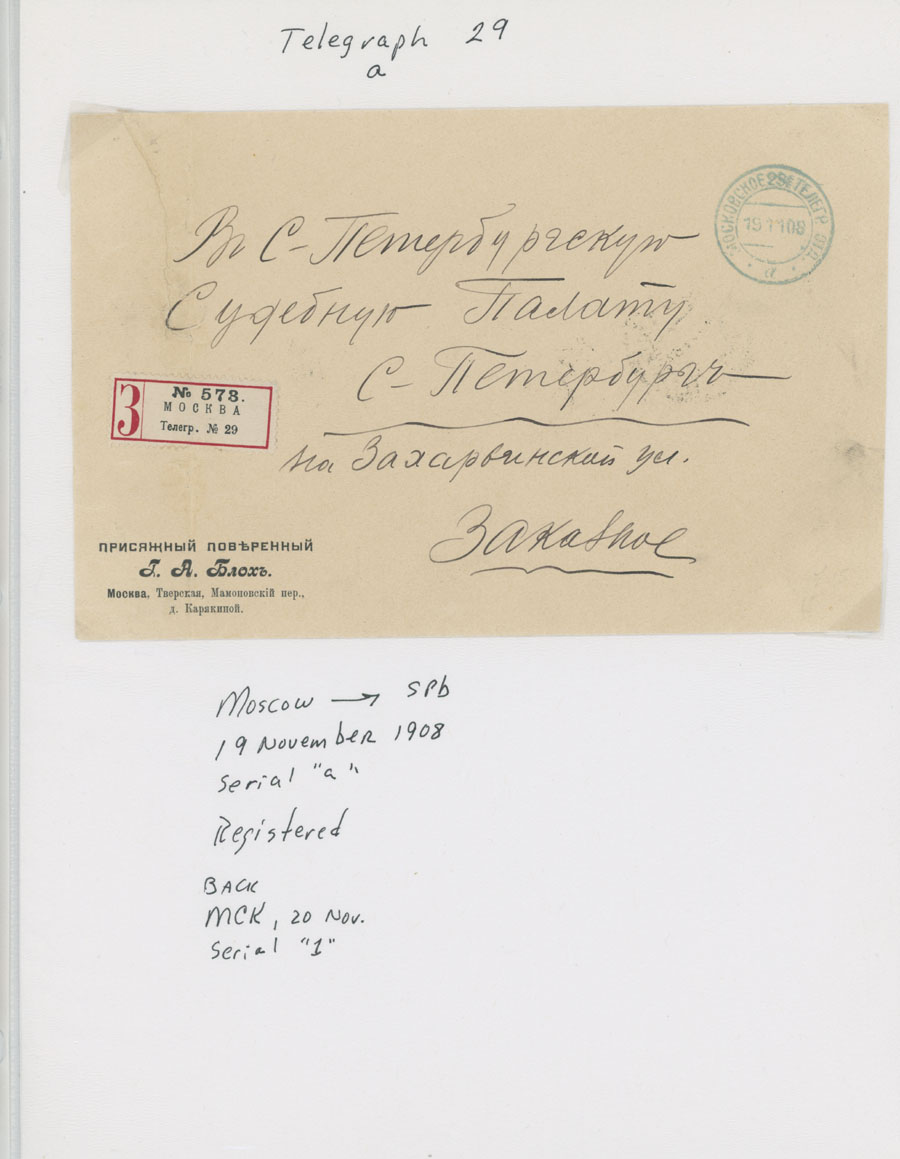 Telegraph 29
a
Въ С-Петербургскую
Судебную Палату
С-Петербургъ
на Захарьинской ул.
Заказное
МОСКОВСКОЕ 29Е ТЕЛЕГР. ОТД.
19 11 08
а
З
№ 573.
МОСКВА
Телегр. № 29
ПРИСЯЖНЫЙ ПОВѢРЕННЫЙ
Г. А. Блохъ.
Москва, Тверская, Мамоновскій пер.,
д. Карякиной.
Moscow → SPb
19 November 1908
Serial "a"
Registered
BACK
МСК, 20 Nov.
Serial "1"